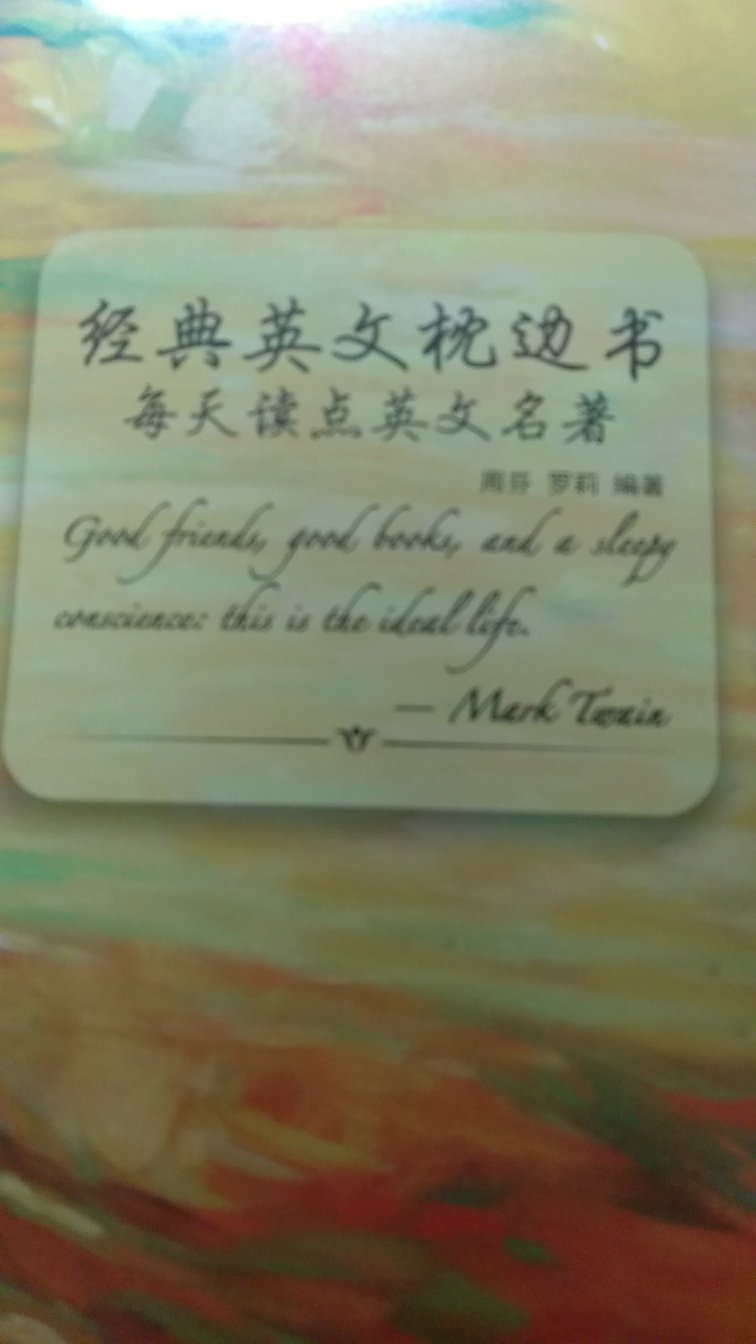 经典英文枕边书
每天读点英文名著
周芬 罗莉 编著
Good friends, good books, and a sleepy
conscience: this is the ideal life.
— Mark Twain